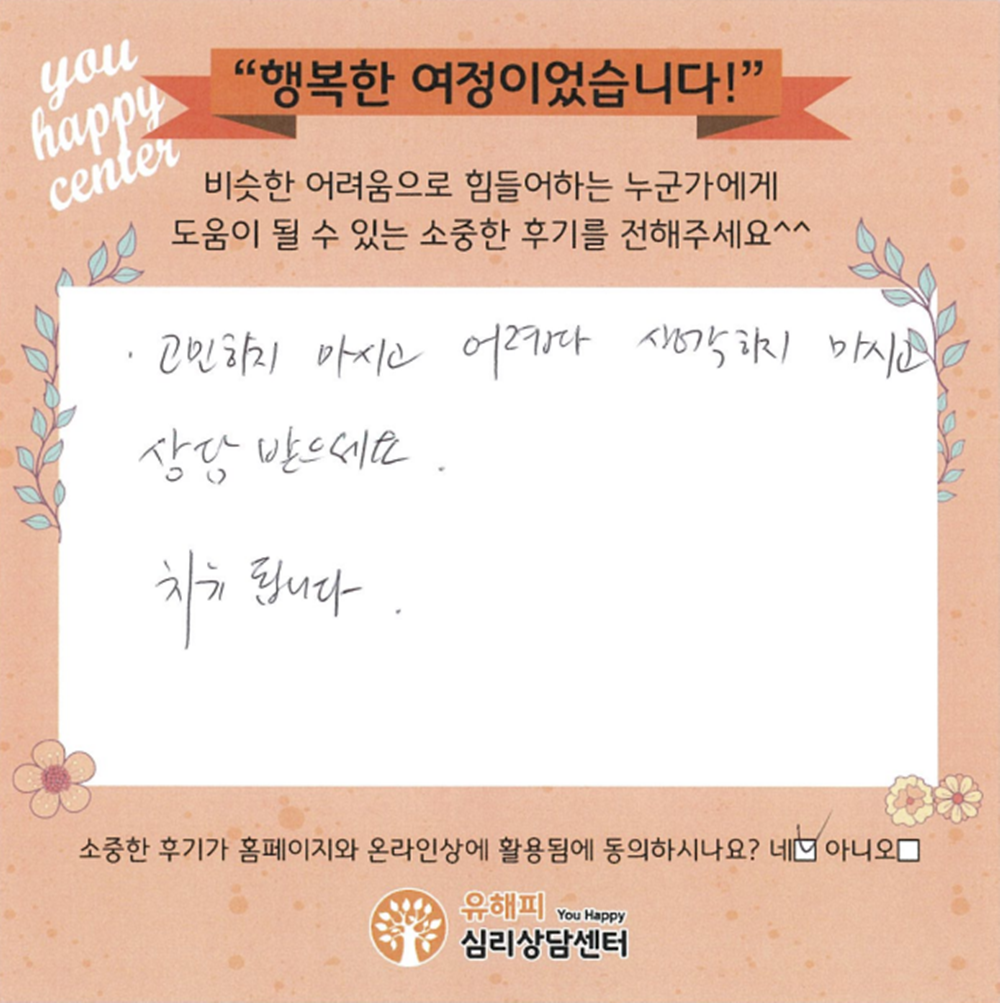 you
happy
center
“행복한 여정이었습니다!”
비슷한 어려움으로 힘들어하는 누군가에게
도움이 될 수 있는 소중한 후기를 전해주세요^^
· 고민하지 마시고 어렵다 생각하지 마시고
상담 받으세요.
치유 됩니다.
소중한 후기가 홈페이지와 온라인상에 활용됨에 동의하시나요? 네☑ 아니오☐
유해피 You Happy
심리상담센터